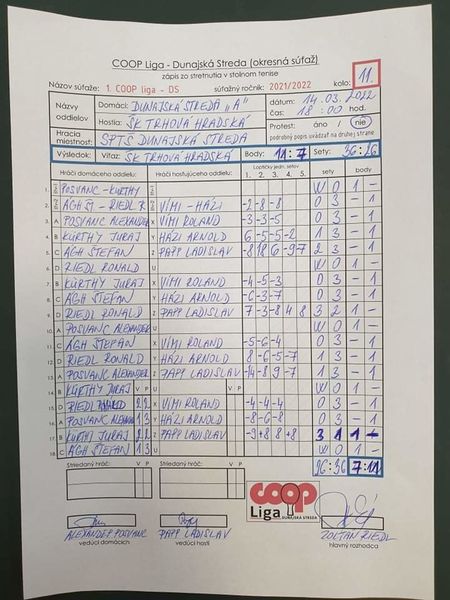 COOP Liga - Dunajská Streda (okresná súťaž)
zápis zo stretnutia v stolnom tenise
Názov súťaže: 1. COOP liga - DS súťažný ročník: 2021/2022 kolo: 11.
Názvy oddielov Domáci: DUNAJSKÁ STREDA "A" dátum: 14.03.2022
Hostia: ŠK TRHOVÁ HRADSKÁ čas: 18 00 hod.
Hracia miestnosť: SPTŠ DUNAJSKÁ STREDA Protest: áno / nie
podrobný popis uvádzať na druhej strane
Výsledok: Víťaz: ŠK TRHOVÁ HRADSKÁ Body: 11:7 Sety: 36:26
Hráči domáceho oddielu: Hráči hosťujúceho oddielu: Loptičky jedn. setov sety body
1. 2. 3. 4. 5.
1. POSVANC - KURTHY W 0 1 -
2. ÁGH ŠT - RIEDL R. VÍMI - HÁZI -2 -8 -8 0 3 - 1
3. A POSVANC ALEXANDER X VÍMI ROLAND -3 -3 -5 0 3 - 1
4. B KÜRTHY JURAJ Y HÁZI ARNOLD 6 -5 -5 -2 1 3 - 1
5. C ÁGH ŠTEFAN Z PAPP LADISLAV -8 18 6 -9 -7 2 3 - 1
6. D RIEDL RONALD U W 0 1 -
7. B KÜRTHY JURAJ X VÍMI ROLAND -4 -5 -3 0 3 - 1
8. C ÁGH ŠTEFAN Y HÁZI ARNOLD -6 -3 -7 0 3 - 1
9. D RIEDL RONALD Z PAPP LADISLAV 7 -3 -8 4 8 3 2 1 -
10. A POSVANC ALEXANDER U W 0 1 -
11. C ÁGH ŠTEFAN X VÍMI ROLAND -5 -6 -4 0 3 - 1
12. D RIEDL RONALD Y HÁZI ARNOLD 8 -6 -5 -7 1 3 - 1
13. A POSVANC ALEXANDER Z PAPP LADISLAV -14 8 9 -7 1 3 - 1
14. B KÜRTHY JURAJ V P U V P W 0 1 -
15. D RIEDL RONALD 2 2 X VÍMI ROLAND -4 -4 -4 0 3 - 1
16. A POSVANC 1 3 Y HÁZI ARNOLD -8 -6 -8 0 3 - 1
17. B KÜRTHY JURAJ 2 2 Z PAPP LADISLAV -9 +8 8 +8 3 1 1 -
18. C ÁGH ŠTEFAN 1 3 W 0 1 -
26:36 7:11
Striedaný hráč: V P Striedaný hráč: V P
COOP
Liga DUNAJSKÁ STREDA
ALEXANDER POSVANC PAPP LADISLAV ZOLTÁN RIEDL
vedúci domácich vedúci hostí hlavný rozhodca